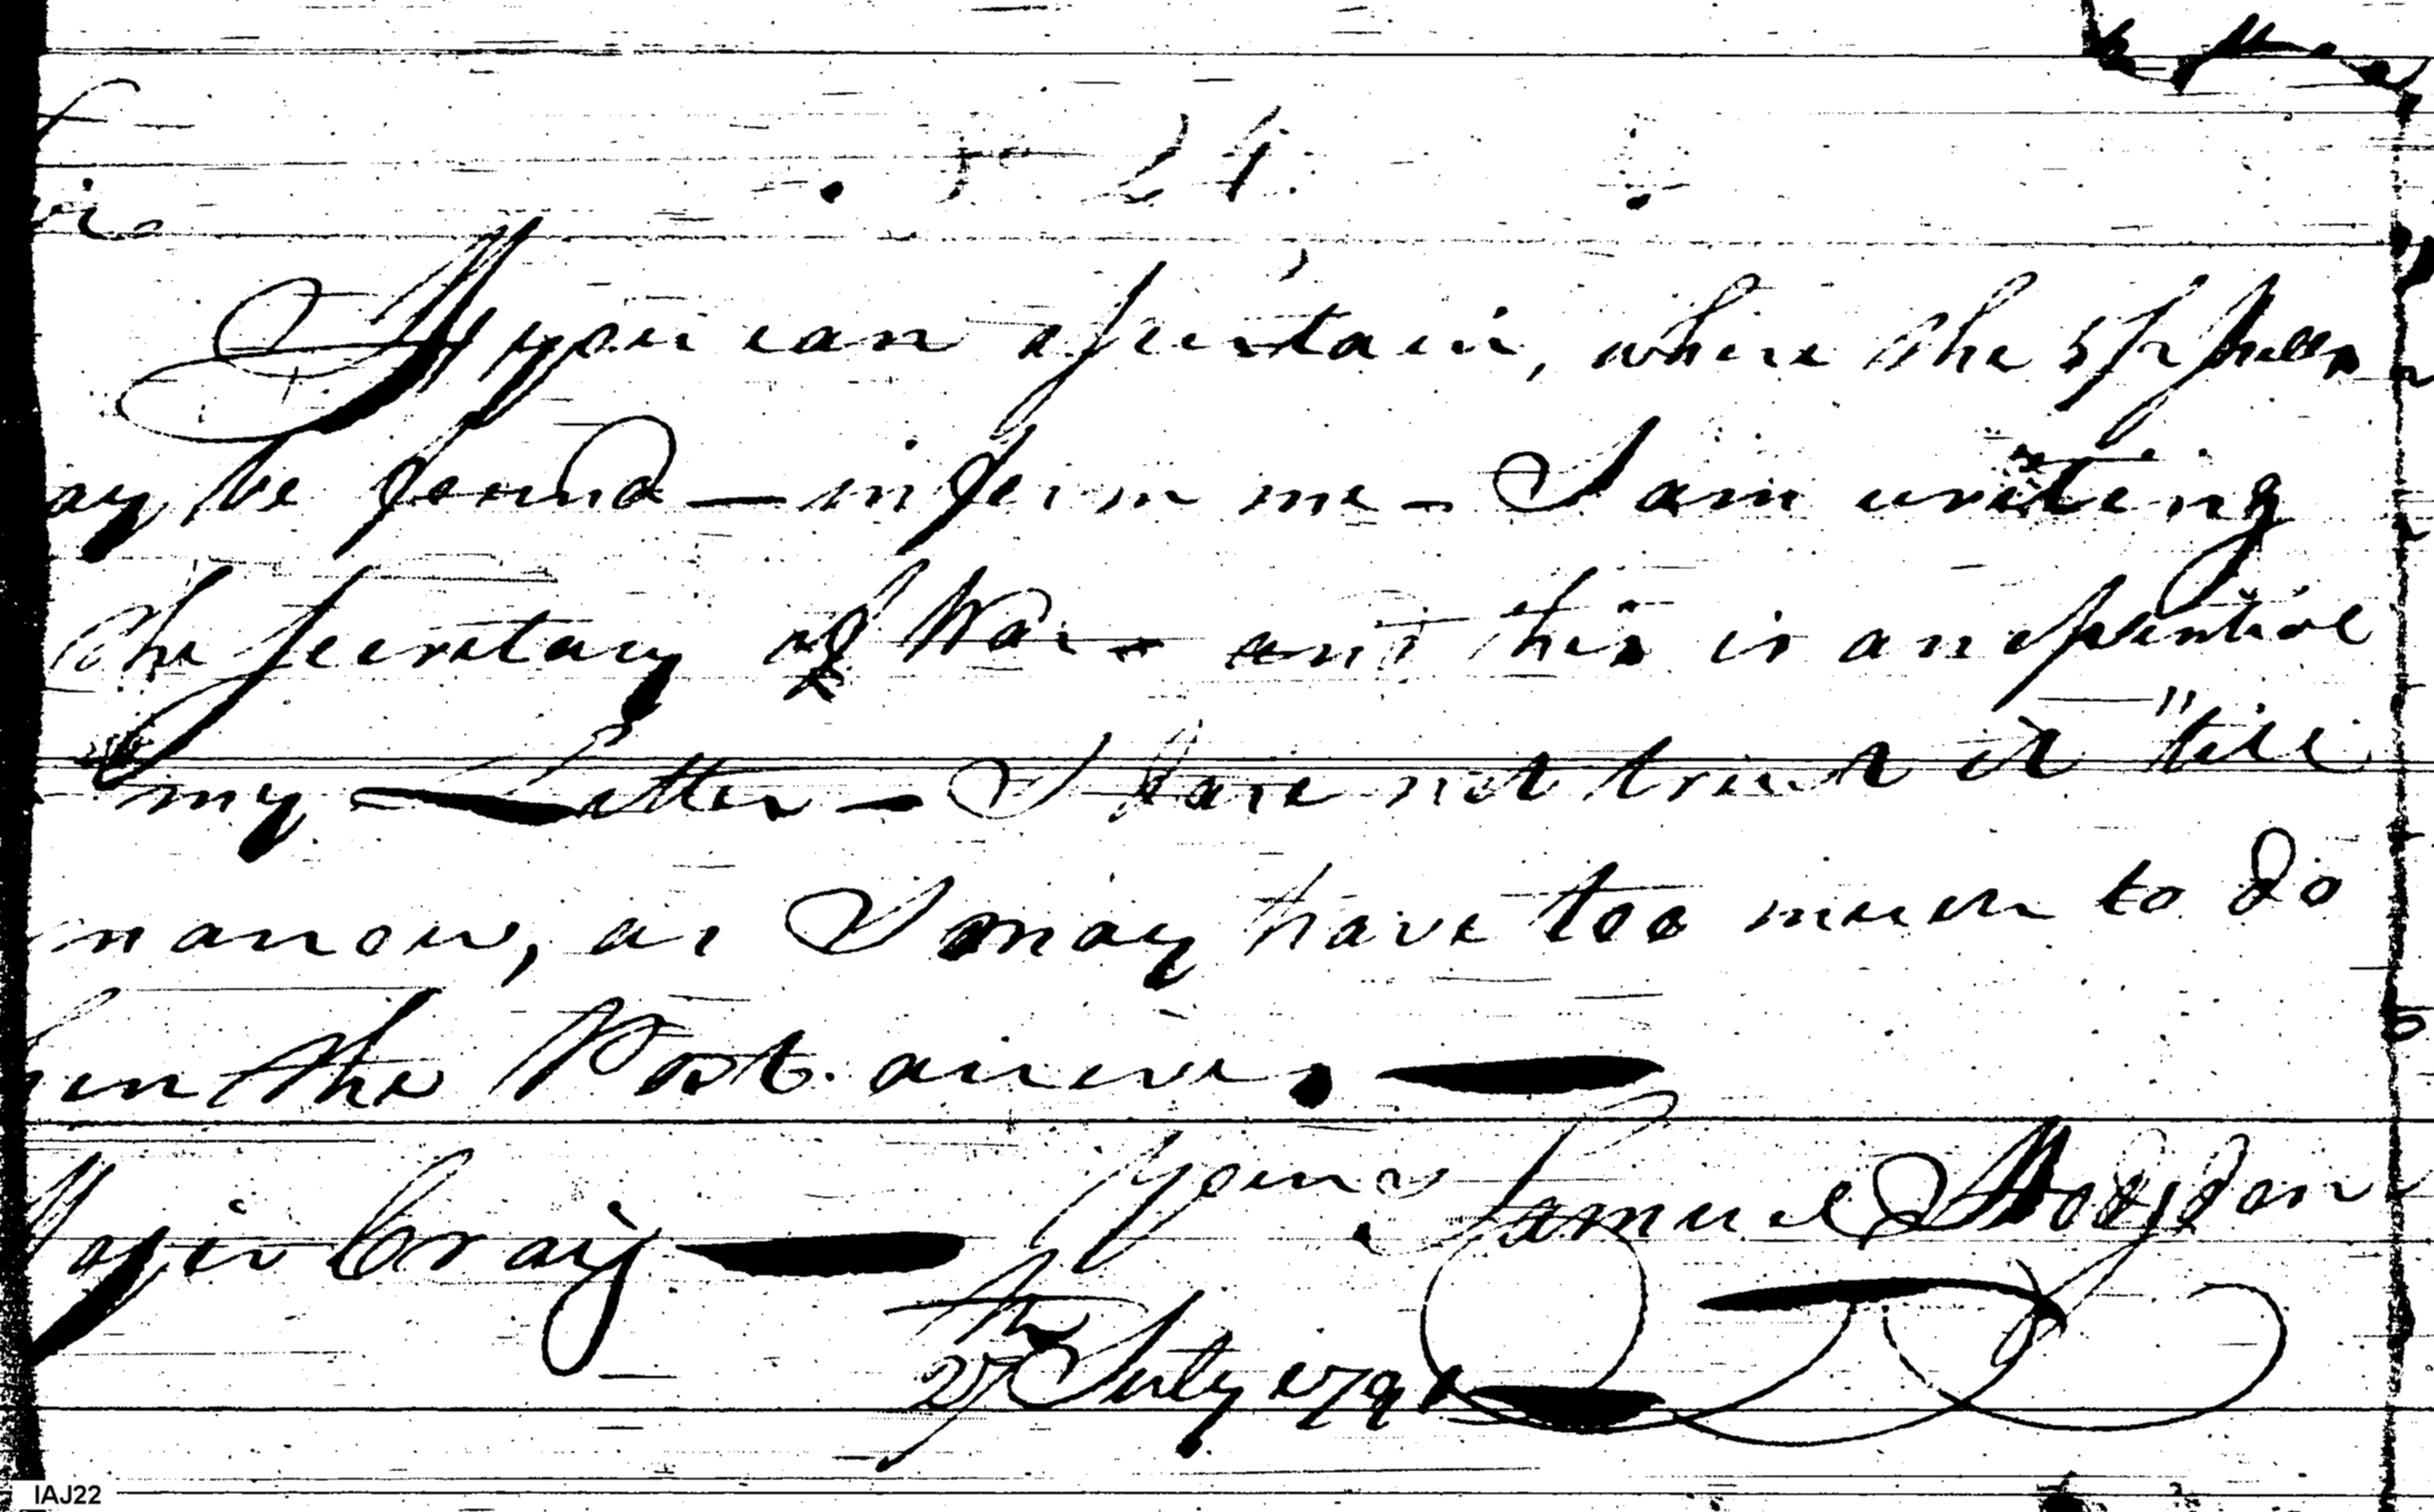 24
If you can ascertain, where the shells
ay be found — inform me — I am writing
the Secretary of War — and this is an essential
my Letter — I dare not trust it "till
marrow, as I may have too much to do
hen the Post arrives. —
Yours Samuel Hodgdon
Major Craig —
27th July 179
IAJ22